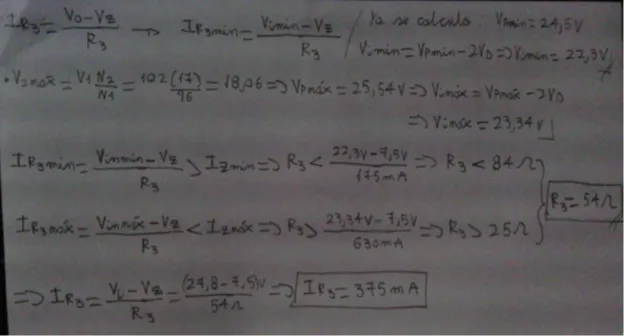 I_R3 = (Vo - Vz)/R3 → I_R3min = (Vimin - Vz)/R3 / Ya se calculo: Vpmin = 24,5V
Vimin = Vpmin - 2VD => Vimin = 22,3V
• V2máx = V1 N2/N1 = 102 (17)/96 = 18,06 => Vpmáx = 25,54V => Vimáx = Vpmáx - 2VD
=> Vimáx = 23,34V
I_R3min = (Vinmin - Vz)/R3 > Izmin => R3 < (22,3V - 7,5V)/175mA => R3 < 84Ω
R3 = 54Ω
I_R3máx = (Vinmáx - Vz)/R3 < Izmáx => R3 > (23,34V - 7,5V)/630mA => R3 > 25Ω
=> I_R3 = (Vi - Vz)/R3 = (27,8 - 7,5)V/54Ω => I_R3 = 375mA